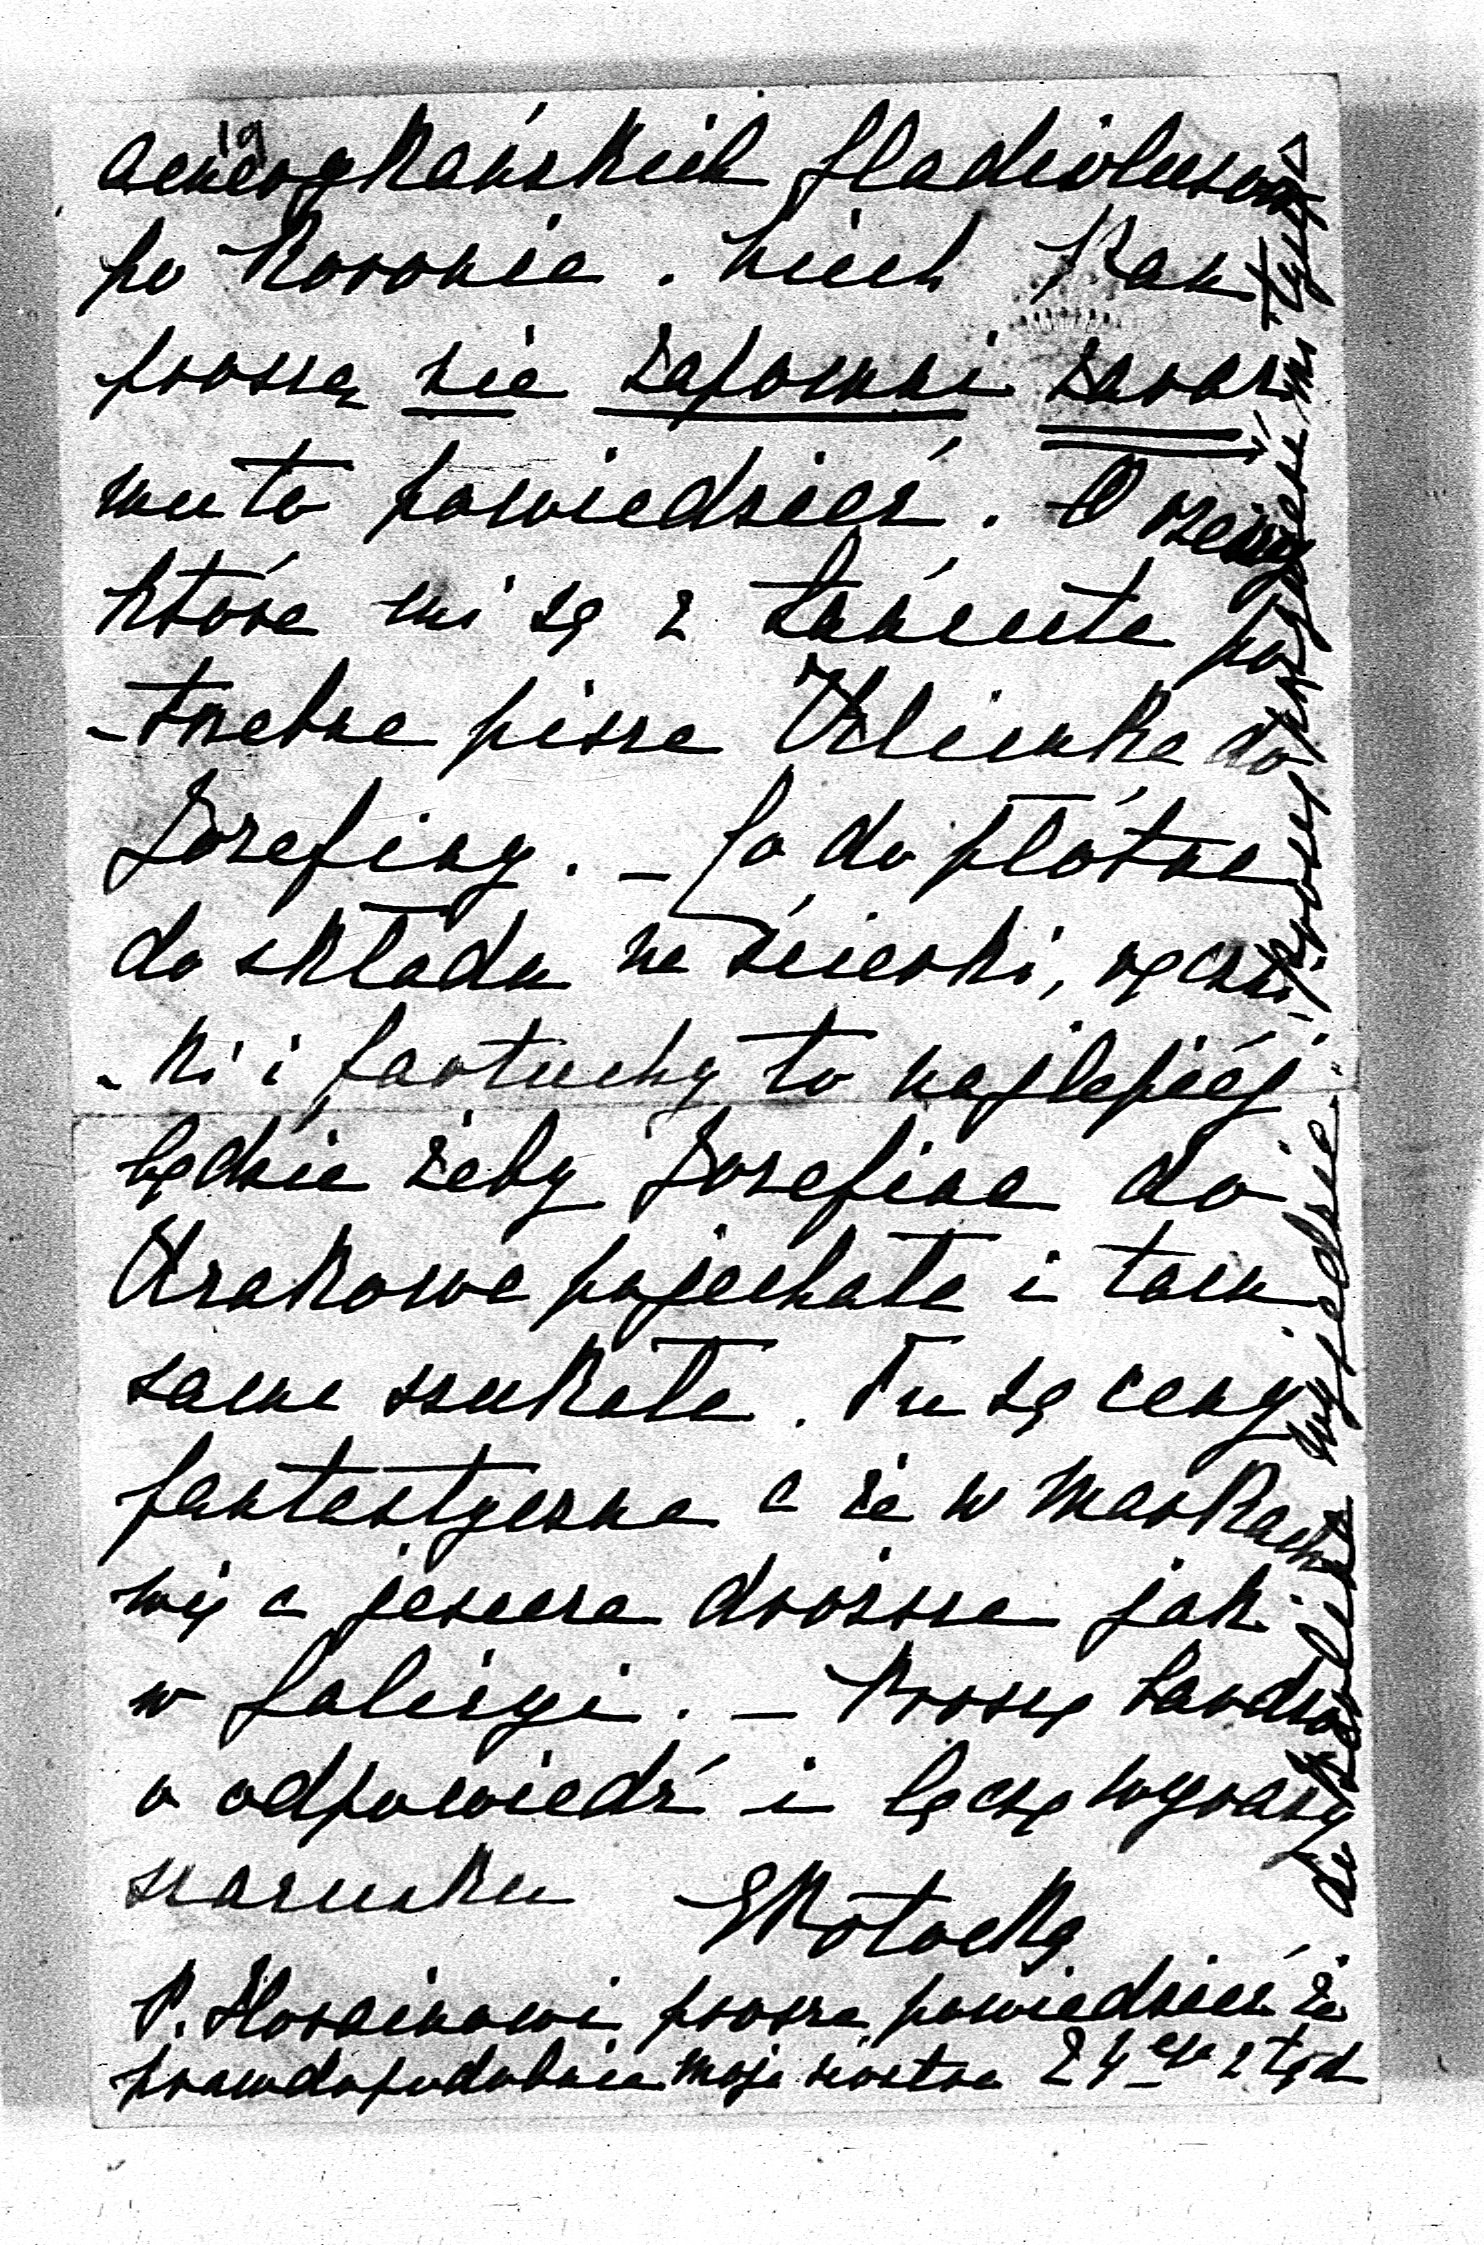 amerykańskich Gladiolusów
po Koronie. Niech Pan
proszę nie zapomni zaraz
mu to powiedzieć. O rzeczy
które mi są z Łańcuta po
-trzebne pisze Klimka do
Józefiny. – Co do płótna
do składu na ścierki, ręczni
-ki i fartuchy to najlepiéj
będzie żeby Józefina do
Krakowa pojechała i tam
sama szukała. Tu są ceny
fantastyczne a że w markach
więc jeszcze droższe jak
w Galicyi. – Proszę bardzo
o odpowiedź i łączę wyrazy
szacunku EPotocka
P. proszę powiedzieć że
prawdopodobnie moja siostra 24ego ztąd
wyjedzie